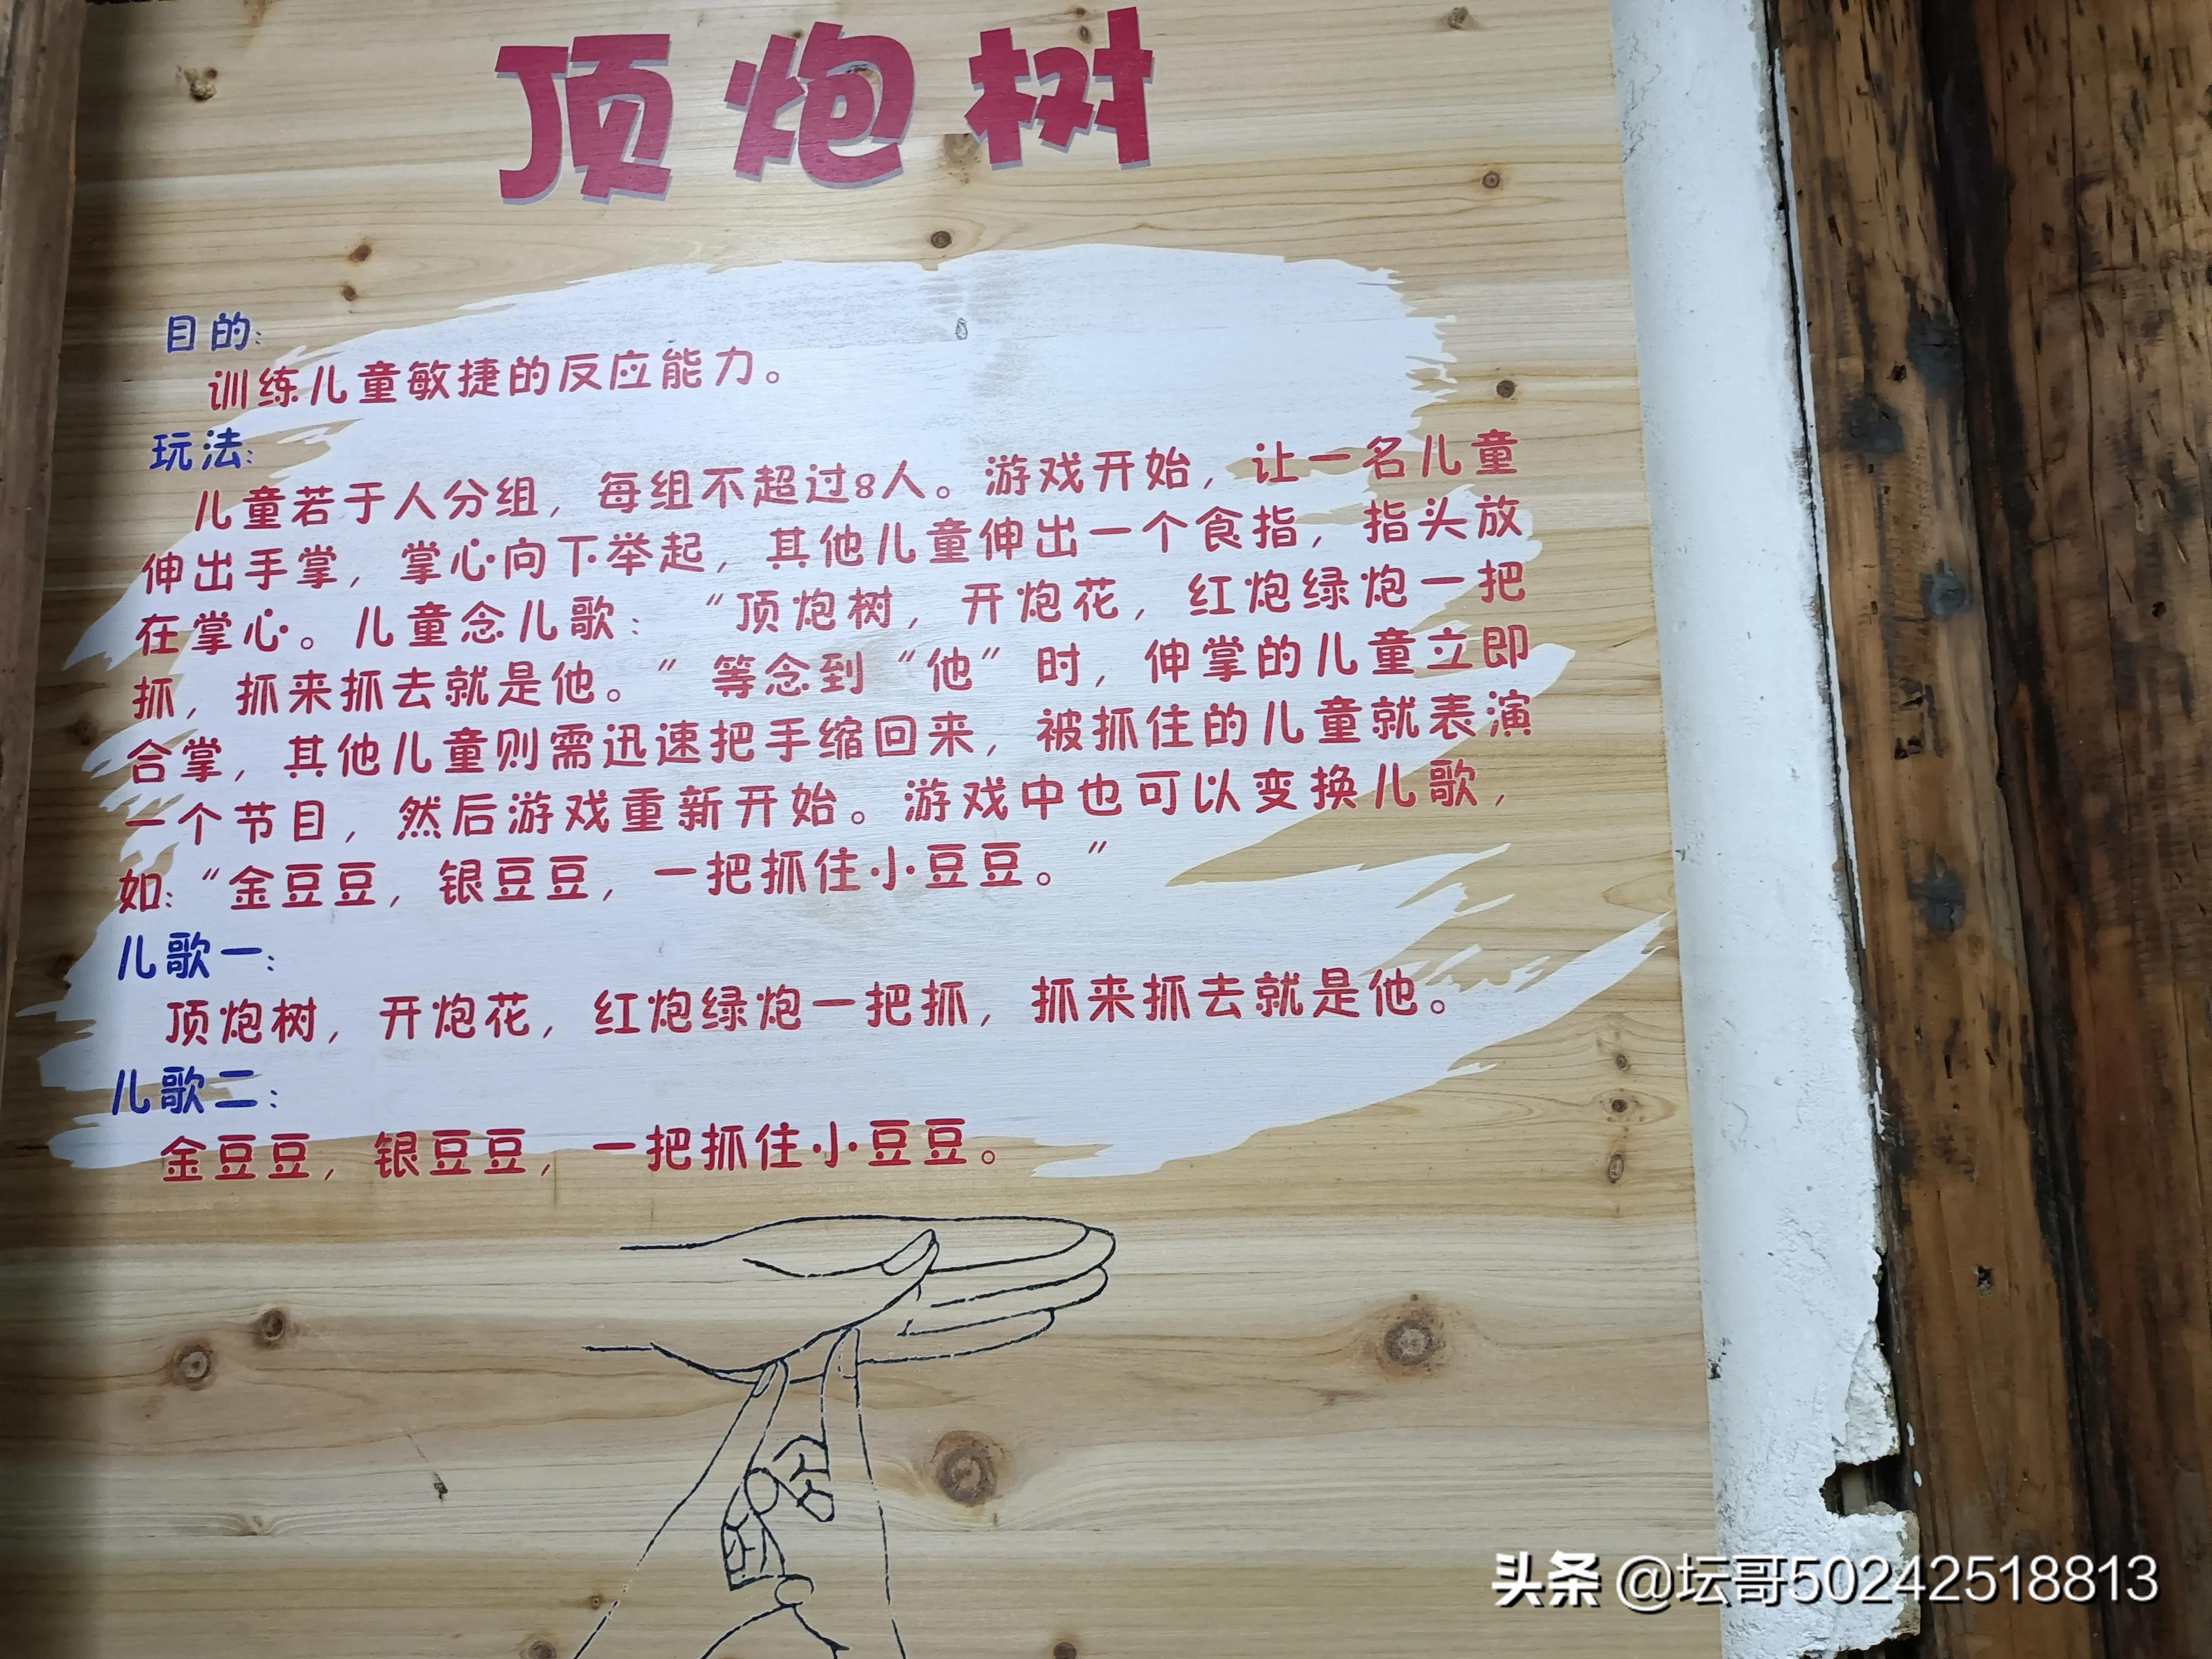 顶炮树
目的:
训练儿童敏捷的反应能力。
玩法:
儿童若于人分组，每组不超过8人。游戏开始，让一名儿童
伸出手掌，掌心向下举起，其他儿童伸出一个食指，指头放
在掌心。儿童念儿歌：“顶炮树，开炮花，红炮绿炮一把
抓，抓来抓去就是他。”等念到“他”时，伸掌的儿童立即
合掌，其他儿童则需迅速把手缩回来，被抓住的儿童就表演
一个节目，然后游戏重新开始。游戏中也可以变换儿歌，
如:“金豆豆，银豆豆，一把抓住小豆豆。”
儿歌一:
顶炮树，开炮花，红炮绿炮一把抓，抓来抓去就是他。
儿歌二:
金豆豆，银豆豆，一把抓住小豆豆。
头条 @坛哥50242518813